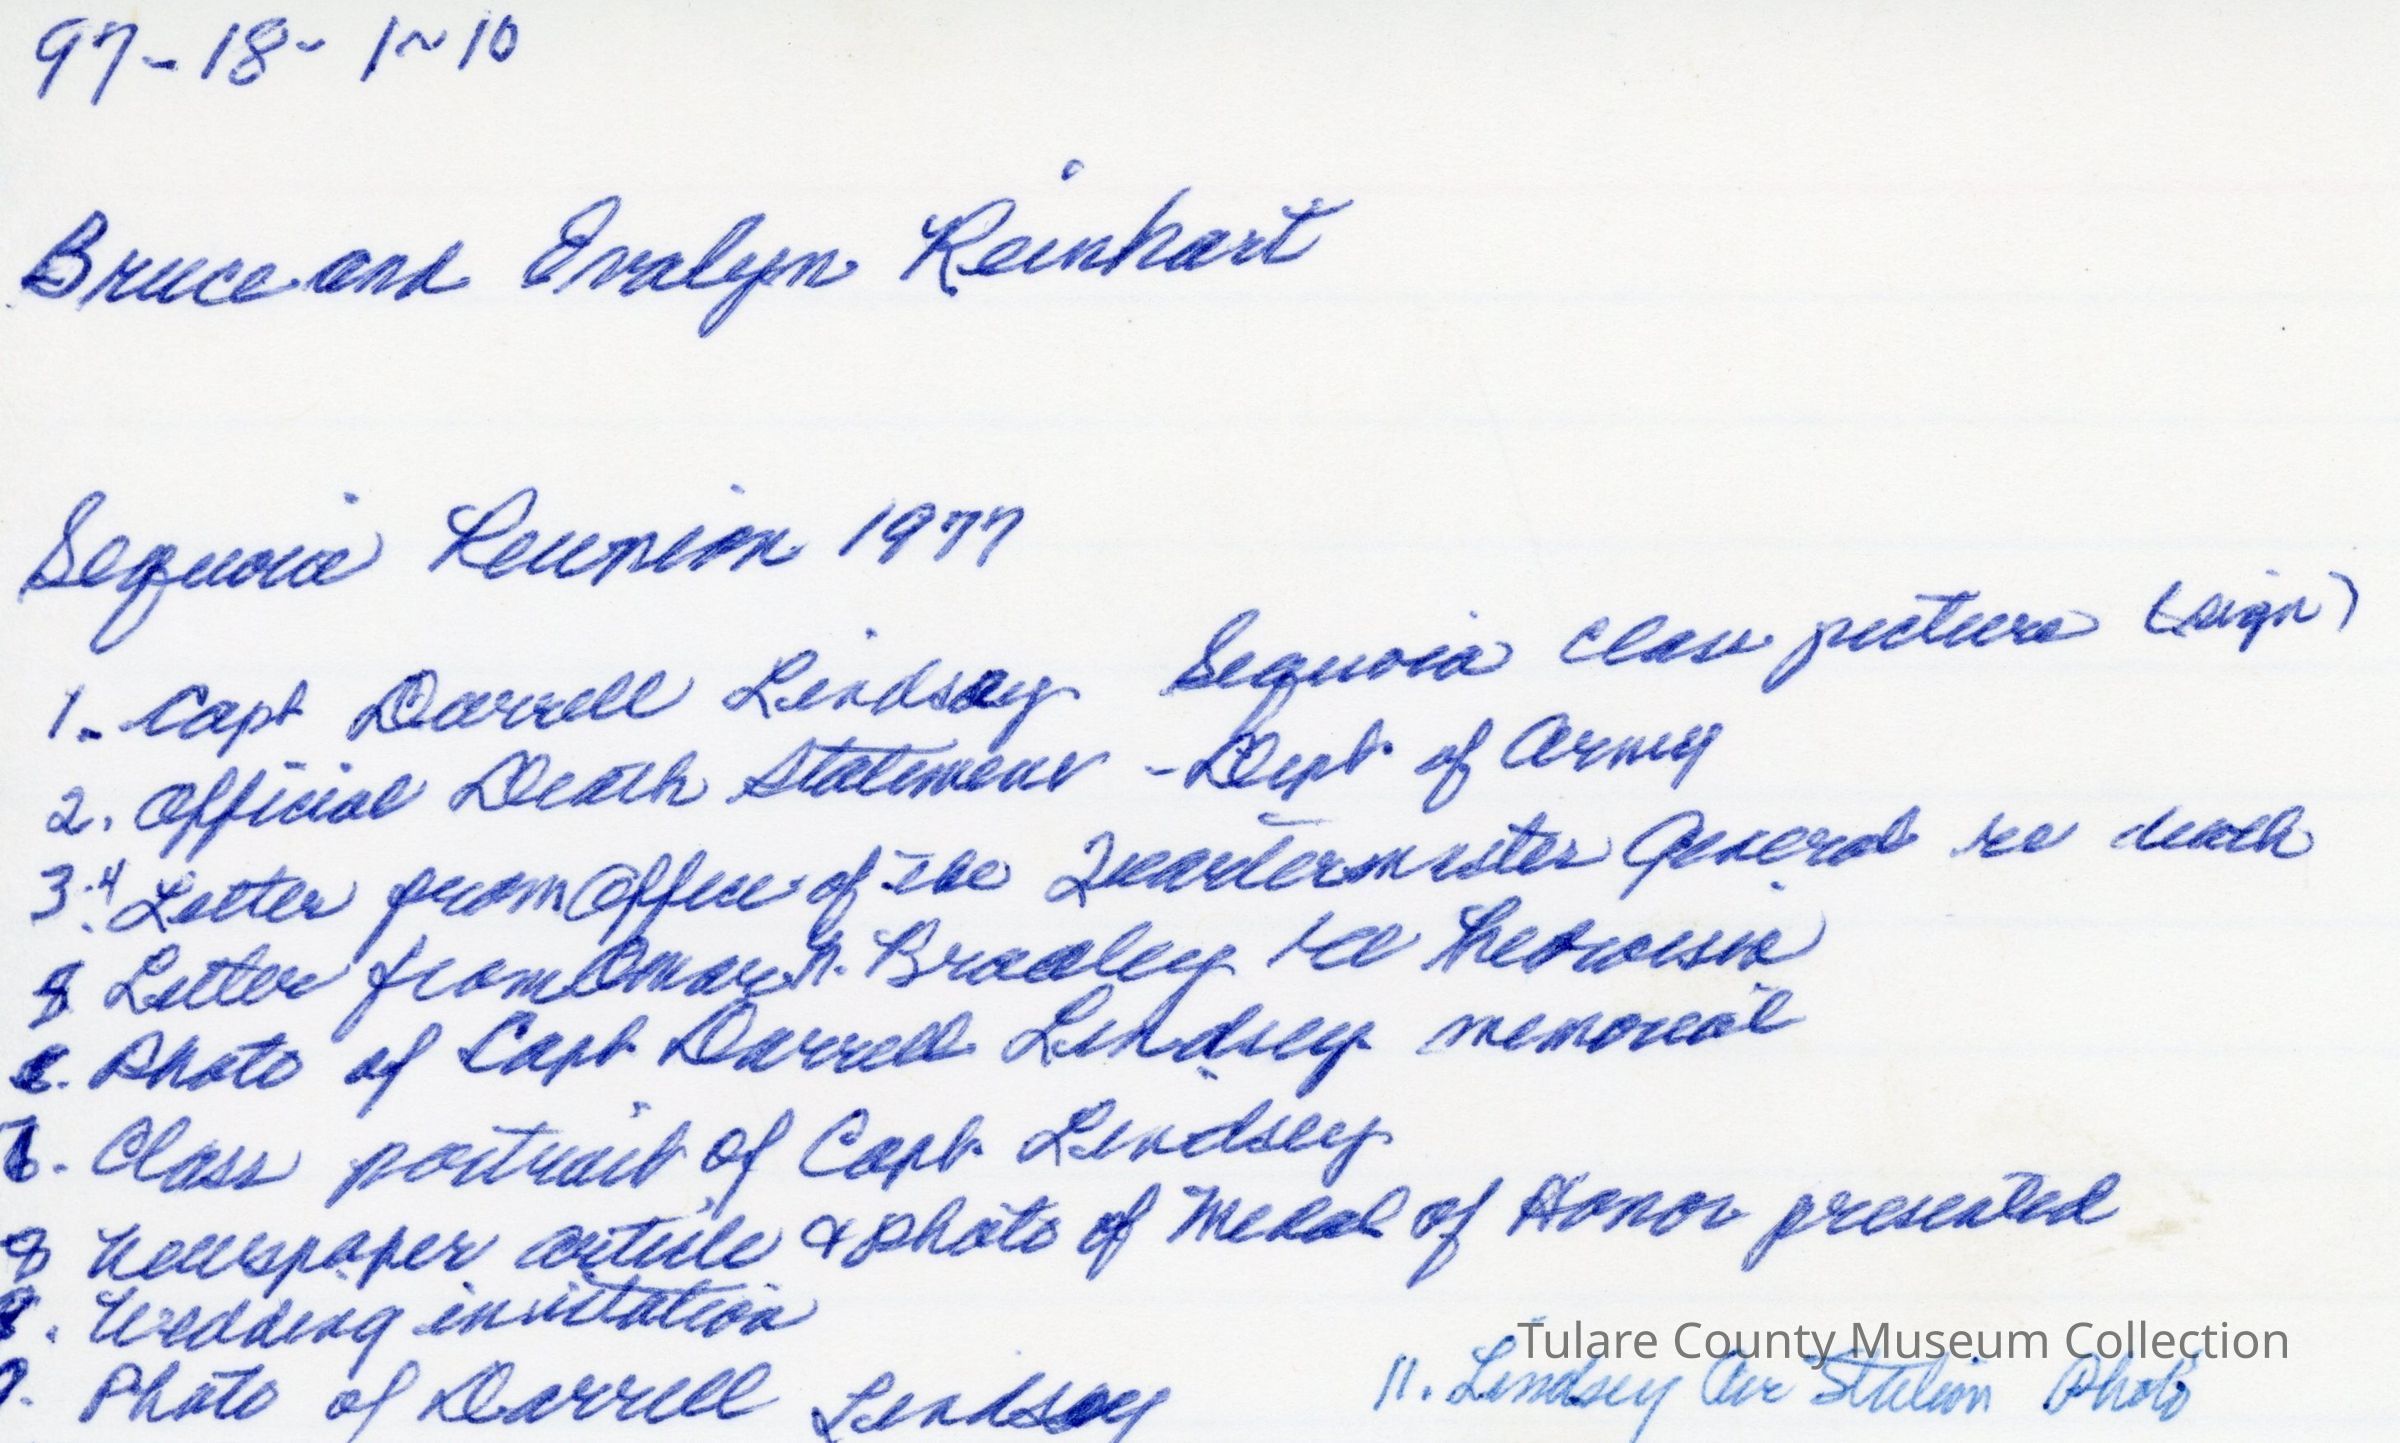 97-18-1~10
Bruce and Evalyn Reinhart
Sequoia Reunion 1977
1. Capt Darrell Lindsey Sequoia class picture (sign)
2. Official Death Statement - Dept. of Army
3.4 Letter from Office of the Quartermaster General re death
Letter from Omar N. Bradley re heroism
6. Photo of Capt. Darrell Lindsey memorial
Class portrait of Capt. Lindsey
8 Newspaper article & photo of Medal of Honor presented
Wedding invitation
Photo of Darrell Lindsey
11. Lindsey Air Station Photo
Tulare County Museum Collection